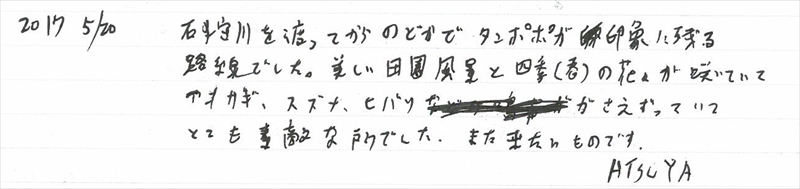 2017 5/20 石狩川を渡ってからのどかで タンポポが印象に残る
路線でした。美しい田園風景と四季(春)の花々が咲いていて
ヤマカギ、スズナ、ヒバリ がさえずっていて
とても素敵な所でした. また来たいものです.
ATSUYA